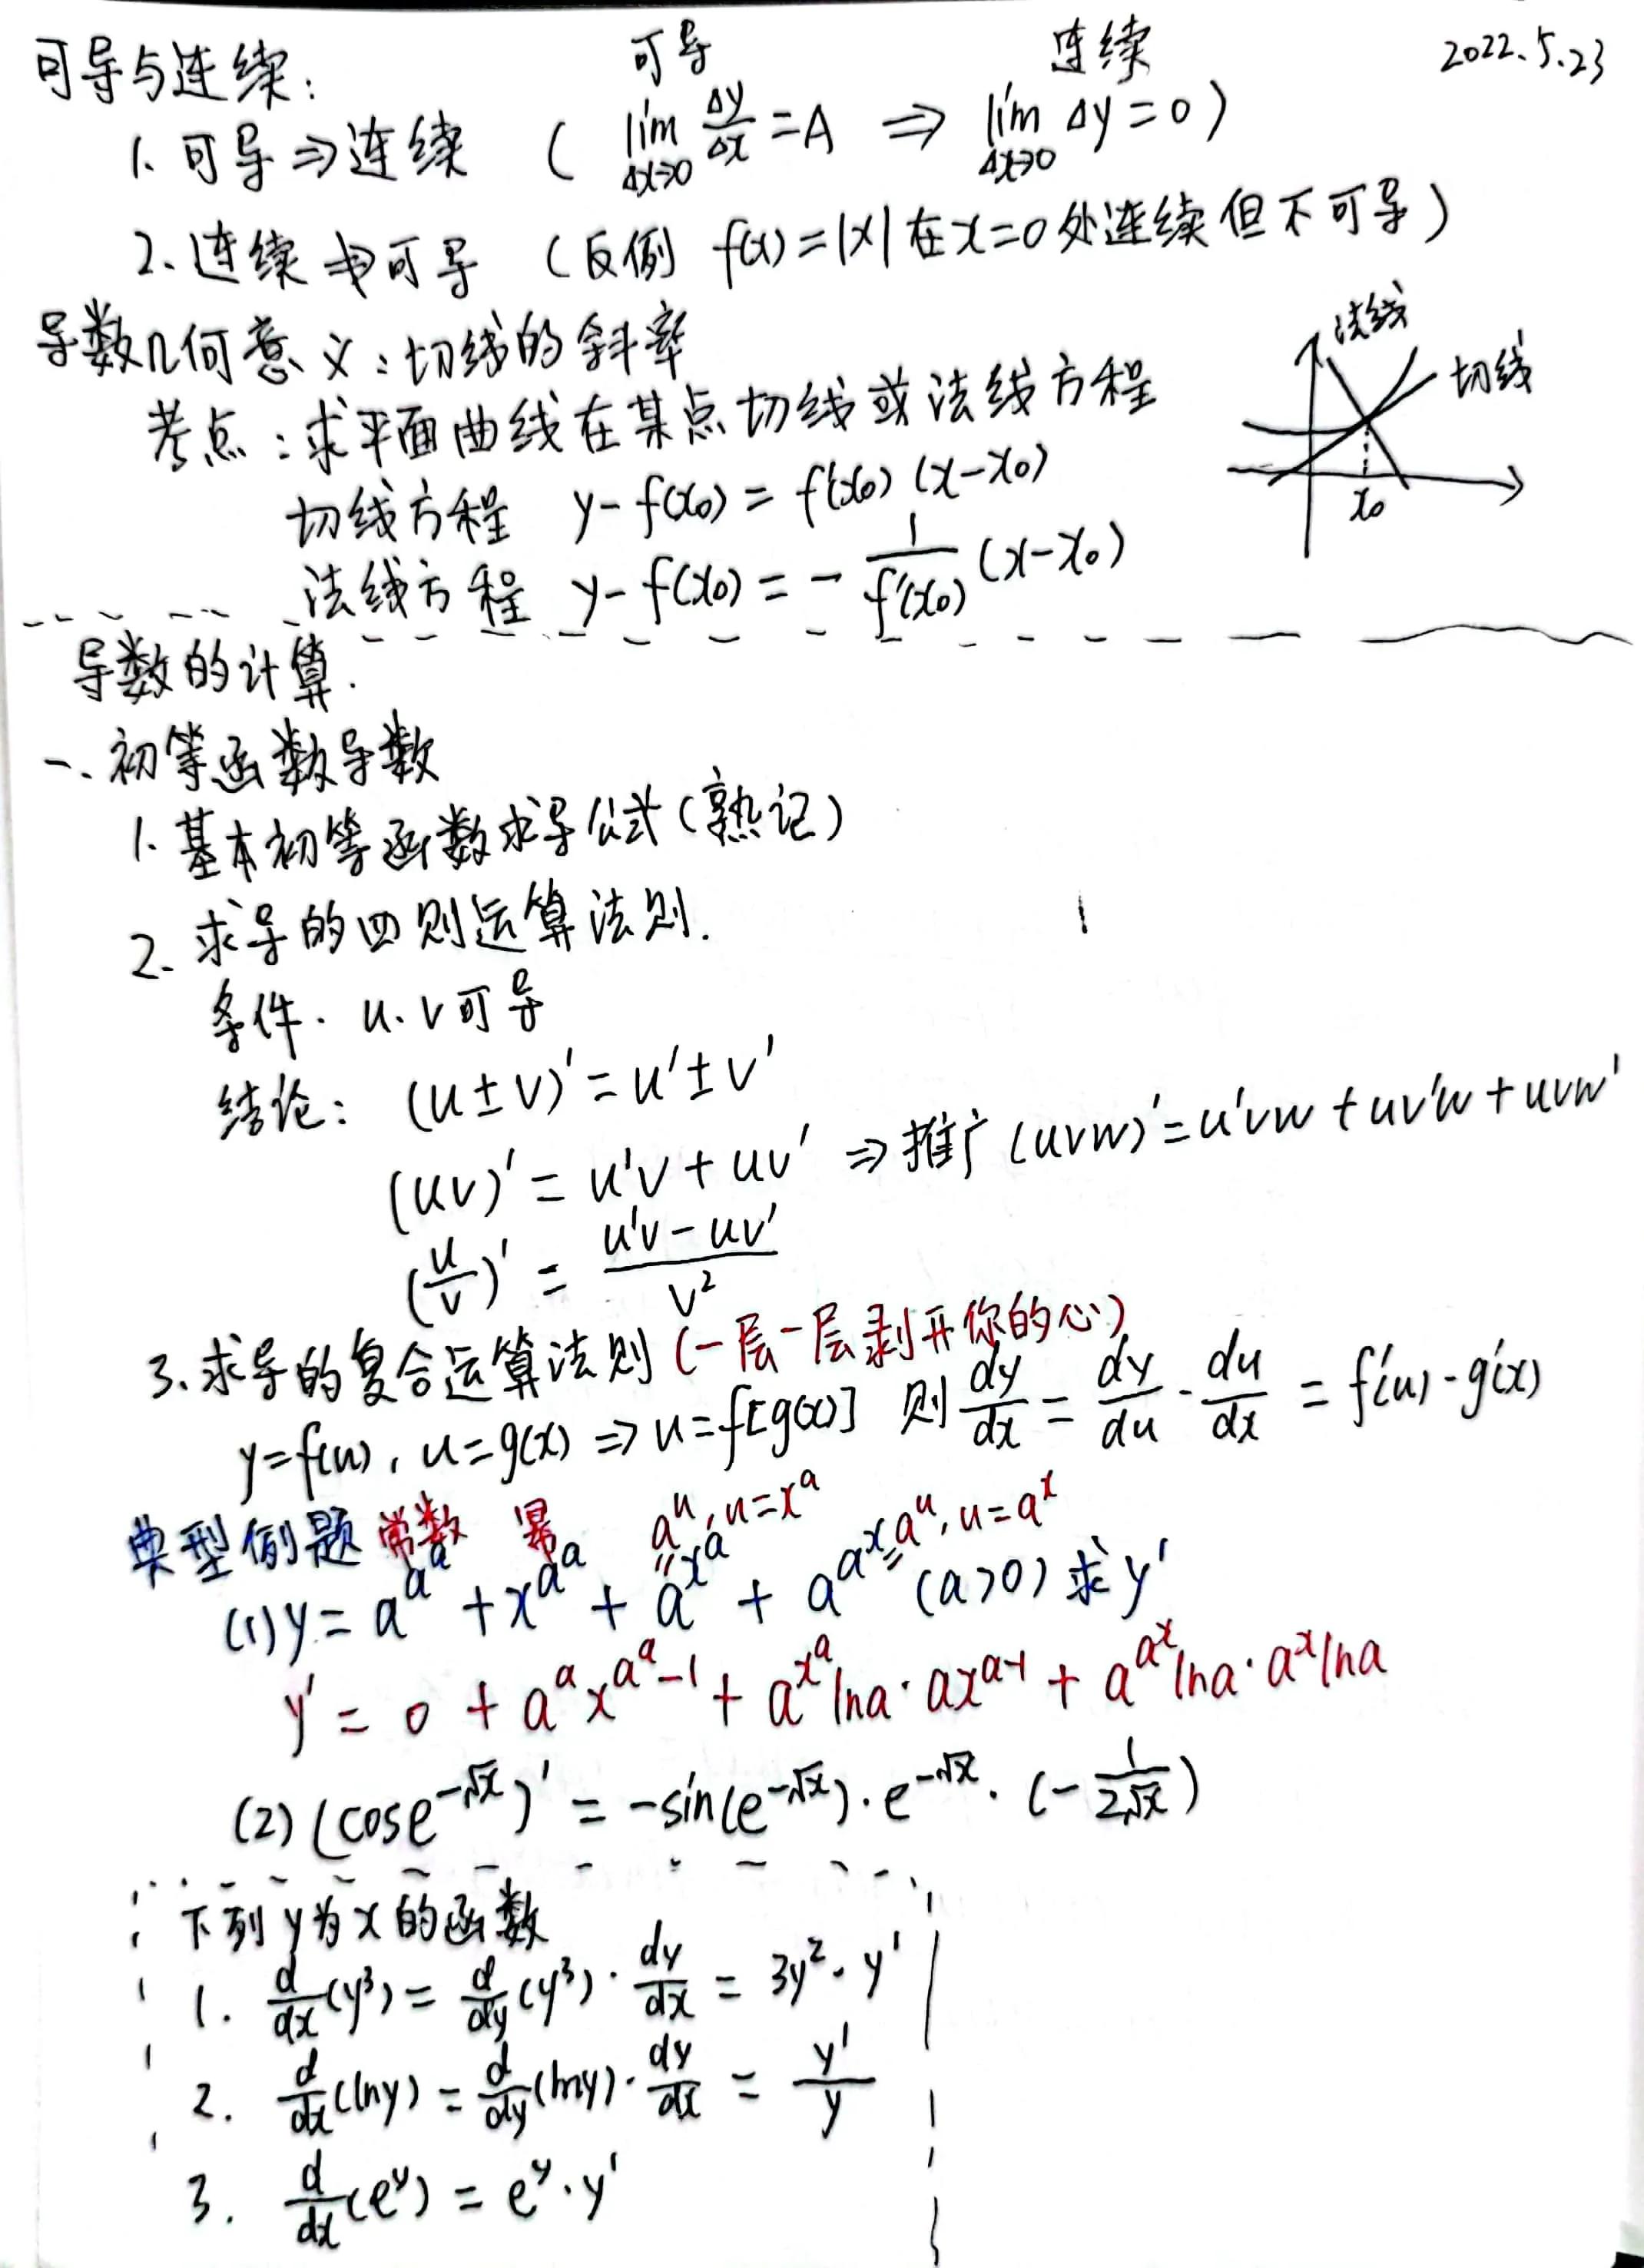 2022.5.23
可导与连续: 可导 连续
1. 可导⇒连续 ( lim_{Δx→0} Δy/Δx = A ⇒ lim_{Δx→0} Δy = 0 )
2. 连续⇏可导 (反例 f(x)=|x| 在x=0处连续但不可导)
导数几何意义:切线的斜率
考点:求平面曲线在某点切线或法线方程
切线方程 y-f(x₀) = f'(x₀)(x-x₀)
法线方程 y-f(x₀) = - 1/f'(x₀) (x-x₀)
法线
切线
x₀
导数的计算.
一、初等函数导数
1. 基本初等函数求导公式(熟记)
2. 求导的四则运算法则.
条件. u. v可导
结论: (u±v)' = u'±v'
(uv)' = u'v + uv' ⇒ 推广 (uvw)' = u'vw + uv'w + uvw'
(u/v)' = (u'v - uv')/v²
3. 求导的复合运算法则 (一层一层剥开你的心)
y=f(u), u=g(x) ⇒ u=f[g(x)] 则 dy/dx = dy/du · du/dx = f'(u)·g'(x)
典型例题 常数 幂 a^u, u=x^a =a^u, u=a^x
(1) y = a^{a^a} + x^{a^a} + a^{x^a} + a^{a^x} (a>0) 求y'
y' = 0 + a^a x^{a^a-1} + a^{x^a} lna · ax^{a-1} + a^{a^x} lna · a^x lna
(2) (cose^{-√x})' = -sin(e^{-√x}) · e^{-√x} · (- 1/(2√x))
下列y为x的函数
1. d/dx (y³) = d/dy (y³) · dy/dx = 3y² · y'
2. d/dx (lny) = d/dy (lny) · dy/dx = y'/y
3. d/dx (e^y) = e^y · y'